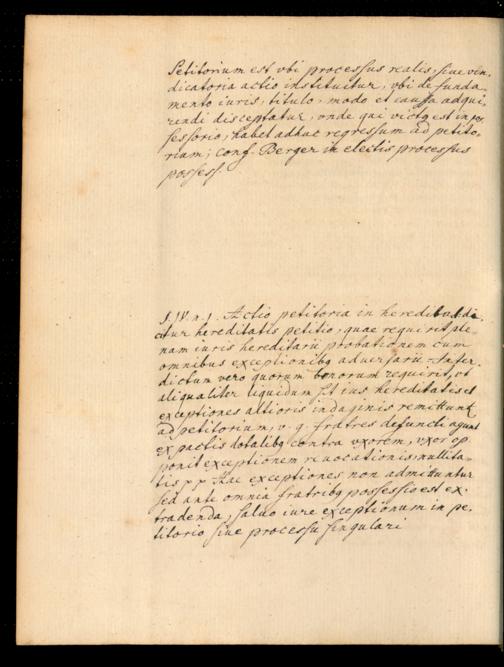 Petitorium est vbi processus realis, siue vin-
dicatoria actio instituitur, vbi de funda-
mento iuris, titulo, modo et causa adqui-
rendi disceptatur, onde qui victq est in pos
sessorio, habet adhuc regressum ad petito-
rium; conf. Berger in electis processus
possess.
§. IV. n. 1. Actio petitoria in heredibus di-
citur hereditatis petitio, quae requirit ple-
nam iuris hereditarii probationem cum
omnibus exceptionibq aduersarii. Inter-
dictum vero quorum bonorum requirit, vt
aliqualiter liquidum sit ius hereditatis et
exceptiones altioris indaginis remittunt
ad petitorium, v. g. fratres defuncti agunt
ex pactis dotalibq contra vxorem, vxor op
ponit exceptionem reuocationis, nullita-
tis pp Hae exceptiones non admittuntur
sed ante omnia fratribq possessio est ex-
tradenda, saluo iure exceptionum in pe-
titorio siue processu singulari